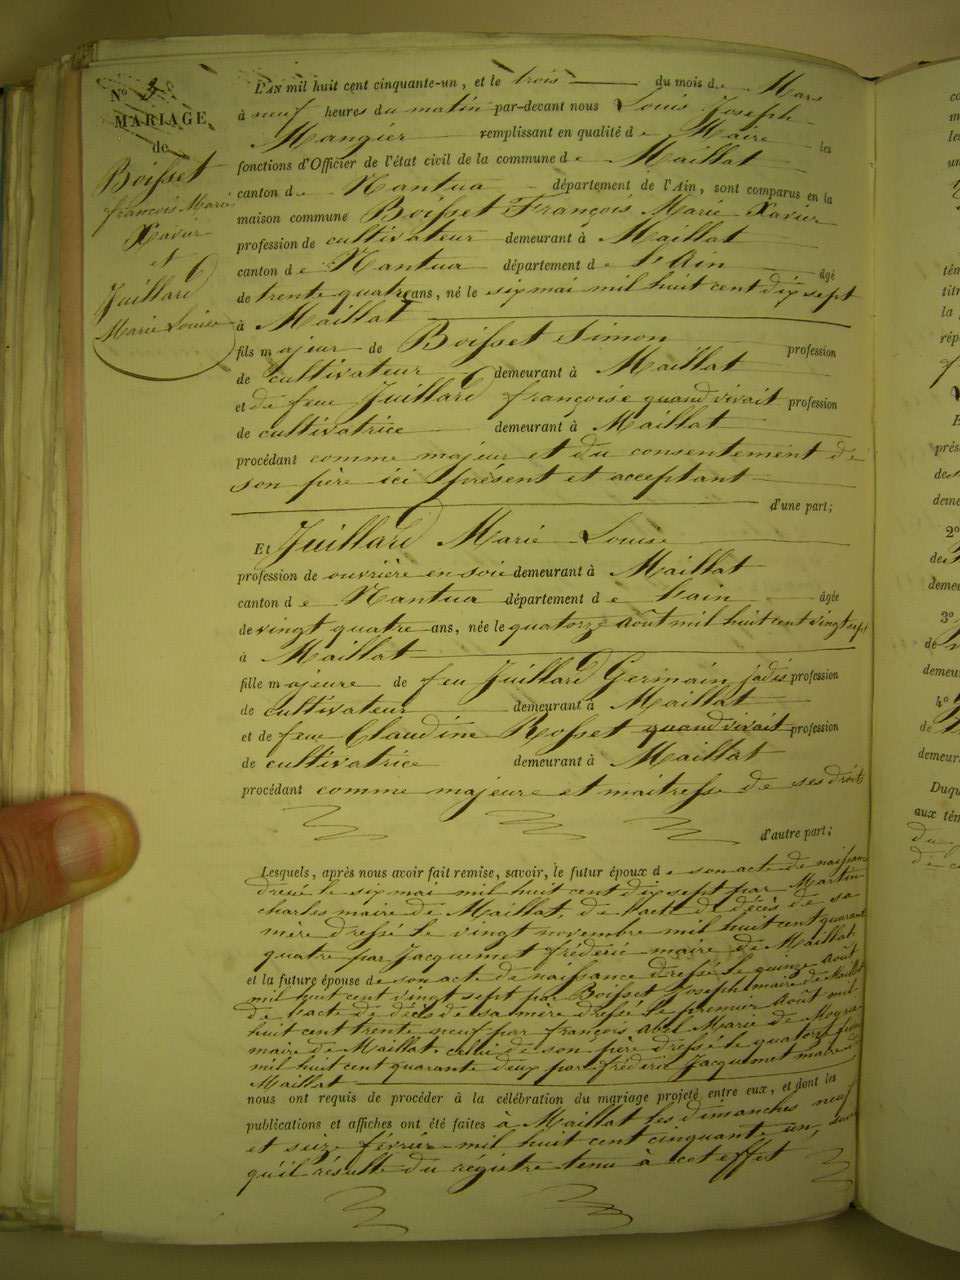 N° 3
MARIAGE
de
Boisset
françois Marie
Xavier
et
Juillard
Marie Louise
L'AN mil huit cent cinquante-un, et le trois du mois de Mars
à neuf heures du matin par-devant nous Louis Joseph
Mangier remplissant en qualité de Maire les
fonctions d'Officier de l'état civil de la commune de Maillat
canton de Nantua département de l'Ain, sont comparus en la
maison commune Boisset François Marie Xavier
profession de cultivateur demeurant à Maillat
canton de Nantua département de l'Ain âgé
de trente quatre ans, né le six mai mil huit cent dix sept
à Maillat
fils majeur de Boisset Simon profession
de cultivateur demeurant à Maillat
et de feue Juillard françoise quand vivait profession
de cultivatrice demeurant à Maillat
procédant comme majeur et du consentement de
son père ici présent et acceptant
d'une part;
Et Juillard Marie Louise
profession de ouvrière en soie demeurant à Maillat
canton de Nantua département de l'ain âgée
de vingt quatre ans, née le quatorze août mil huit cent vingt sept
à Maillat
fille majeure de feu Juillard Germain jadis profession
de cultivateur demeurant à Maillat
et de feue Claudine Rosset quand vivait profession
de cultivatrice demeurant à Maillat
procédant comme majeure et maitresse de ses droits
d'autre part;
Lesquels, après nous avoir fait remise, savoir, le futur époux de son acte de naissance
dressé le six mai mil huit cent dix sept par Martin
charles maire de Maillat, de l'acte de décès de sa
mère dressé le vingt novembre mil huit cent quarante
quatre par Jacquemet frédéric maire de Maillat
et la future épouse de son acte de naissance dressé le quinze août
mil huit cent vingt sept par Boisset Joseph maire de Maillat
de l'acte de décès de sa mère dressé le premier août mil
huit cent trente neuf par françois Marie de
maire de Maillat, celui de son père dressé le quatorze
mil huit cent quarante deux par frédéric Jacquemet maire de
Maillat
nous ont requis de procéder à la célébration du mariage projeté entre eux, et dont les
publications et affiches ont été faites à Maillat les dimanches neuf
et seize février mil huit cent cinquante un,
qu'il résulte du régistre tenu à cet effet